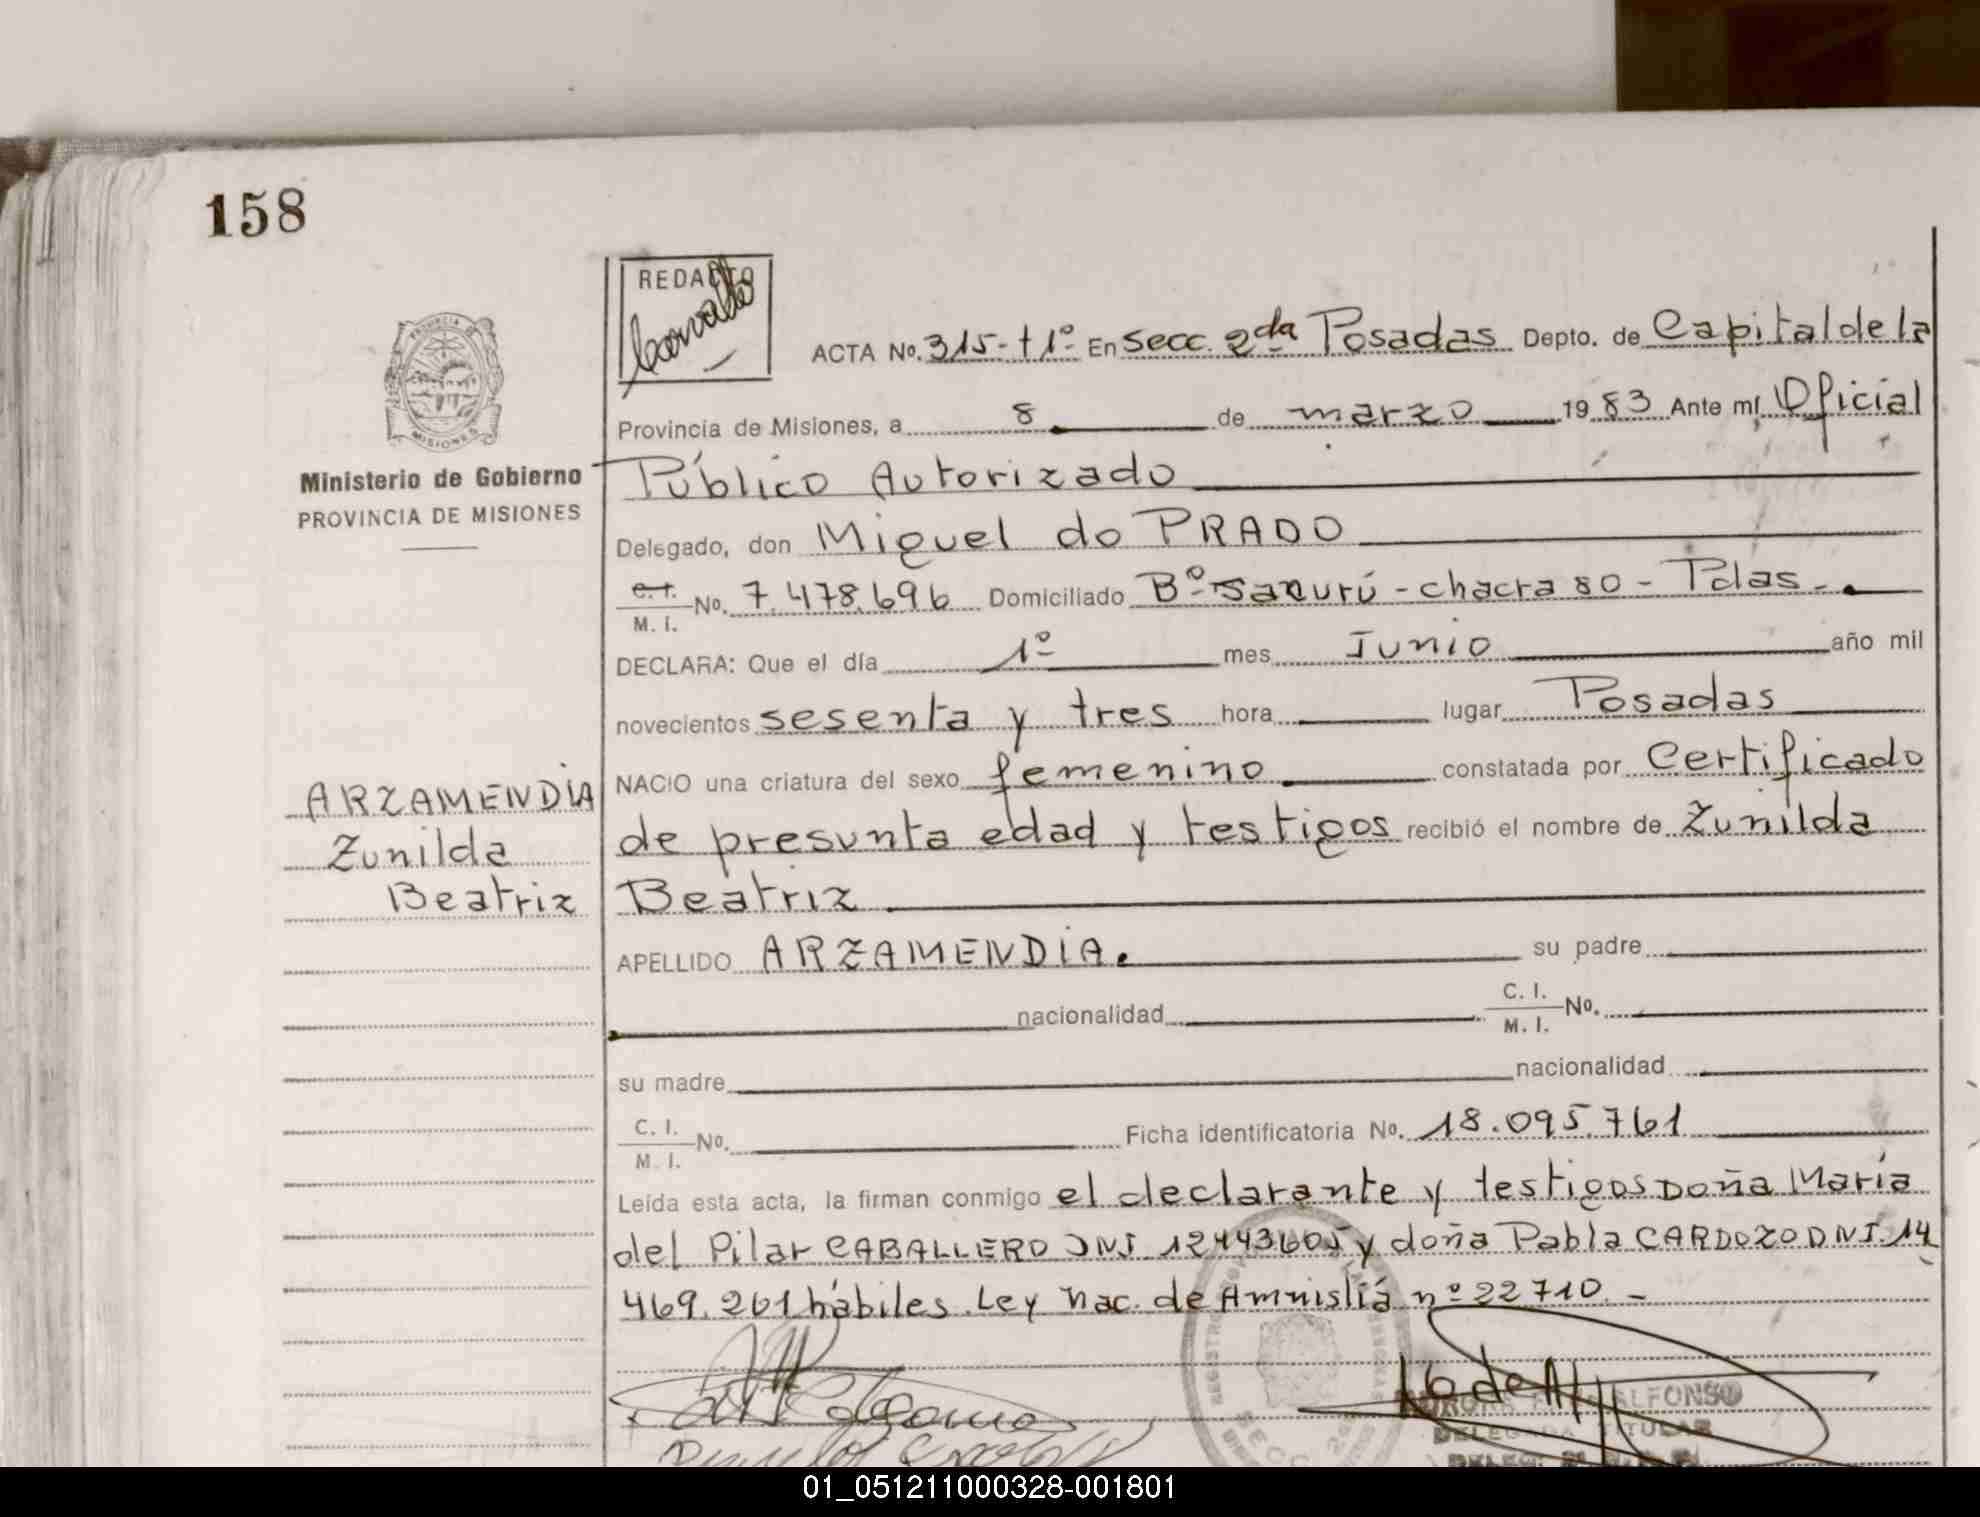 158
REDACTO
PROVINCIA DE
MISIONES
Ministerio de Gobierno
PROVINCIA DE MISIONES
ARZAMENDIA
Zunilda
Beatriz
ACTA No. 315-t 1º En Secc. 2da Posadas Depto. de Capital de la
Provincia de Misiones, a 8 de marzo 1983 Ante mí, Oficial
Público Autorizado
Delegado, don Miguel do PRADO
C. I.
M. I. No. 7.478.696 Domiciliado Bº Sacurú - chacra 80 - Pdas.-
DECLARA: Que el día 1º mes Junio año mil
novecientos sesenta y tres hora lugar Posadas
NACIO una criatura del sexo femenino constatada por Certificado
de presunta edad y testigos recibió el nombre de Zunilda
Beatriz
APELLIDO ARZAMENDIA. su padre
nacionalidad C. I.
M. I. No.
su madre nacionalidad
C. I.
M. I. No. Ficha identificatoria No. 18.095.761
Leída esta acta, la firman conmigo el declarante y testigos Doña María
del Pilar CABALLERO DNI 12443605 y doña Pabla CARDOZO DNI. 14
469.261 hábiles. Ley Nac. de Amnistiá nº 22710. -
ALFONSO
DELEGADA TITULAR
01_051211000328-001801